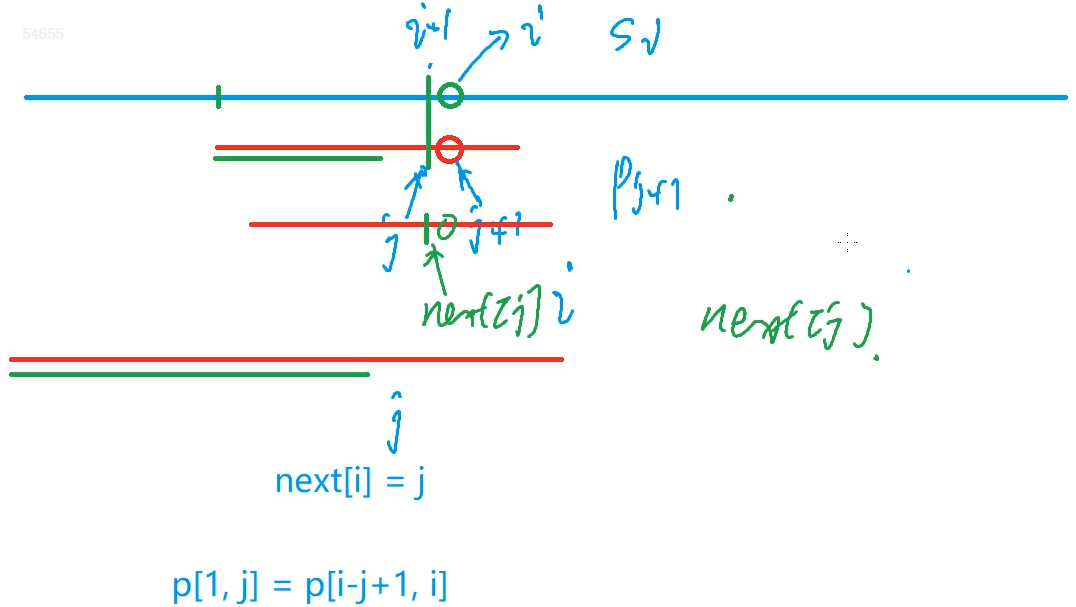 54655
i-1 i Si
Pj+1
j j+1
next[j] i next[j]
j
next[i] = j
p[1, j] = p[i-j+1, i]